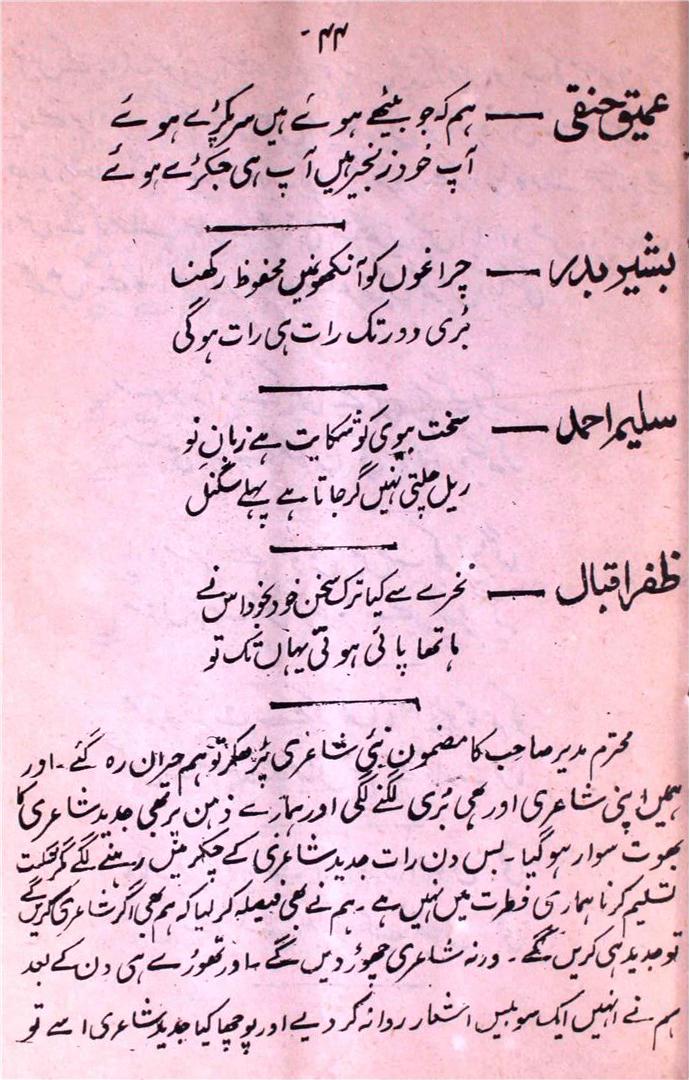 ۴۴-
عمیق حنفی — ہم کہ جو بیٹھے ہوئے ہیں سر پکڑے ہوئے
آپ خود زنجیر ہیں آپ ہی جکڑے ہوئے
بشیر بدر — چراغوں کو آنکھوں میں محفوظ رکھنا
بڑی دور تک رات ہی رات ہوگی
سلیم احمد — سخت بیوی کو شکایت ہے زبانِ نو
ریل چلتی نہیں گر جاتا ہے پہلے سگنل
ظفر اقبال — نخرے سے کیا ترک سخن خود بخود اس نے
ہاتھا پائی ہوئی یہاں تک تو
محترم مدیر صاحب کا مضمون نئی شاعری پڑھکر تو ہم حیران رہ گئے۔ اور
ہمیں اپنی شاعری اور بھی بُری لگنے لگی اور ہمارے ذہن پر بھی جدید شاعری کا
بھوت سوار ہو گیا۔ بس دن رات جدید شاعری کے چکر میں رہنے لگے مگر شکست
تسلیم کرنا ہماری فطرت میں نہیں ہے۔ ہم نے بھی فیصلہ کر لیا کہ ہم بھی اگر شاعری کریں گے
تو جدید ہی کریں گے۔ ورنہ شاعری چھوڑ دیں گے۔ اور تھوڑے ہی دن کے بعد
ہم نے انہیں ایک سو بیس اشعار روانہ کر دیے اور پوچھا کیا جدید شاعری اسے تو